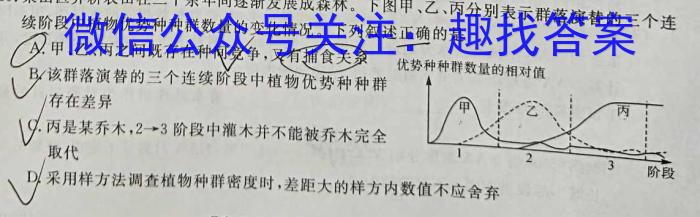 某山区弃耕农田在二十余年间逐渐发展成森林。下图甲、乙、丙分别表示群落演替的三个连
续阶段中植物优势种种群数量的变化情况。下列叙述正确的是
微信公众号关注：趣找答案
A. 甲、乙、丙之间既存在种间竞争，又有捕食关系
B. 该群落演替的三个连续阶段中植物优势种种群
存在差异
C. 丙是某乔木，2→3 阶段中灌木并不能被乔木完全
取代
D. 采用样方法调查植物种群密度时，差距大的样方内数值不应舍弃
优势种种群数量的相对值
甲
乙
丙
1
2
3
阶段